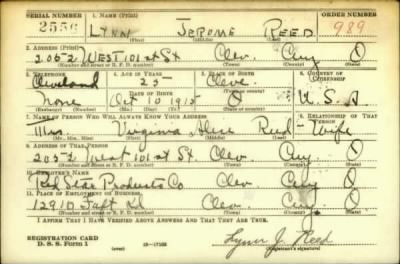 SERIAL NUMBER 1. NAME (Print) ORDER NUMBER
2556 LYNN JEROME REED 989
(First) (Middle) (Last)
2. ADDRESS (Print)
2052 WEST 101 at St Clev. Cuy O
(Number and street or R. F. D. number) (Town) (County) (State)
3. TELEPHONE 4. AGE IN YEARS 5. PLACE OF BIRTH 6. COUNTRY OF CITIZENSHIP
Cleveland 25 Cleve.
DATE OF BIRTH
None Oct 10 1915 O U.S.A
7. NAME OF PERSON WHO WILL ALWAYS KNOW YOUR ADDRESS 8. RELATIONSHIP OF THAT PERSON
Mrs. Virginia Alice Reed - Wife
(Mr., Mrs., Miss) (First) (Middle) (Last)
9. ADDRESS OF THAT PERSON
2052 West 101 at St. Clev. Cuy. O
(Number and street or R. F. D. number) (Town) (County) (State)
10. EMPLOYER'S NAME
Red Star Products Co Clev. Cuy O
11. PLACE OF EMPLOYMENT OR BUSINESS
12910 Taft Rd Clev. Cuy. O
(Number and street or R. F. D. number) (Town) (County) (State)
I AFFIRM THAT I HAVE VERIFIED ABOVE ANSWERS AND THAT THEY ARE TRUE.
REGISTRATION CARD
D. S. S. Form 1 (over) Lynn J. Reed